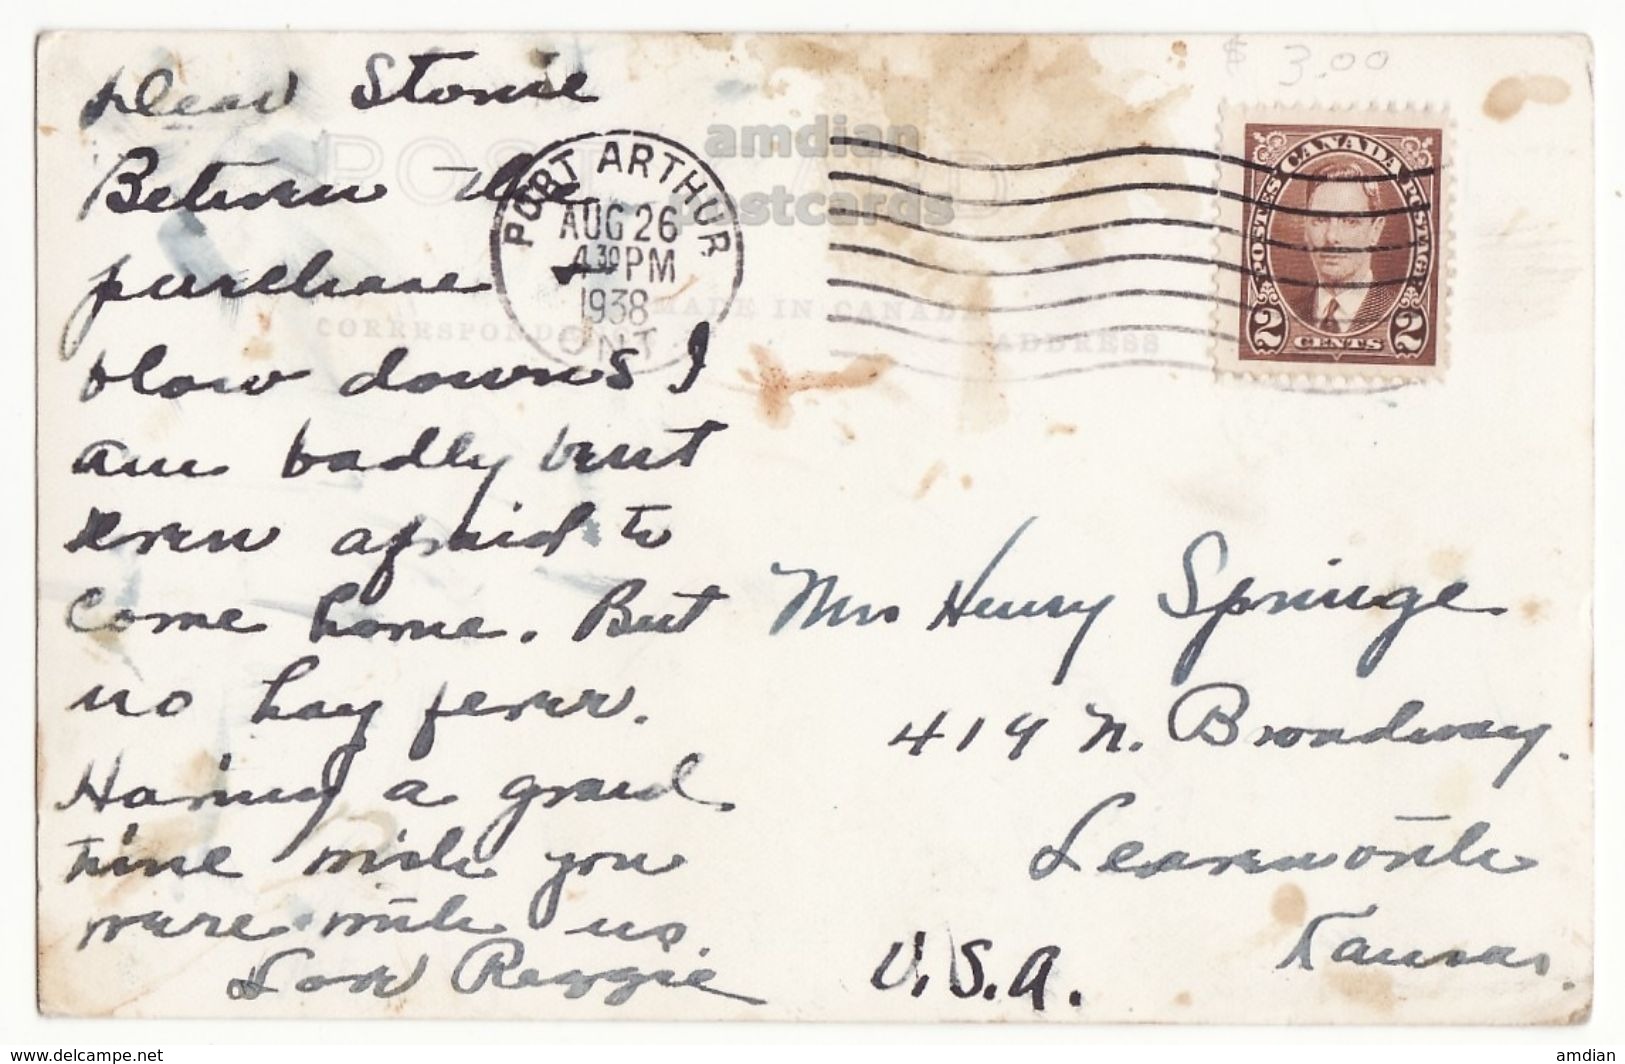 $ 3.00
Dear Stonie
Between the
purchase
blow downs I
am badly bent
even afraid to
come home. But
no hay fever.
Having a grand
time wish you
were with us.
Love Reggie
POST CARD
MADE IN CANADA
CORRESPONDENCE
ADDRESS
PORT ARTHUR
AUG 26
4 30 PM
1938
ONT
CANADA
POSTES POSTAGE
2 CENTS 2
Mrs Henry Springe
419 N. Broadway.
Leavenworth
Kansas.
U.S.A.
amdian
postcards
www.delcampe.net
amdian